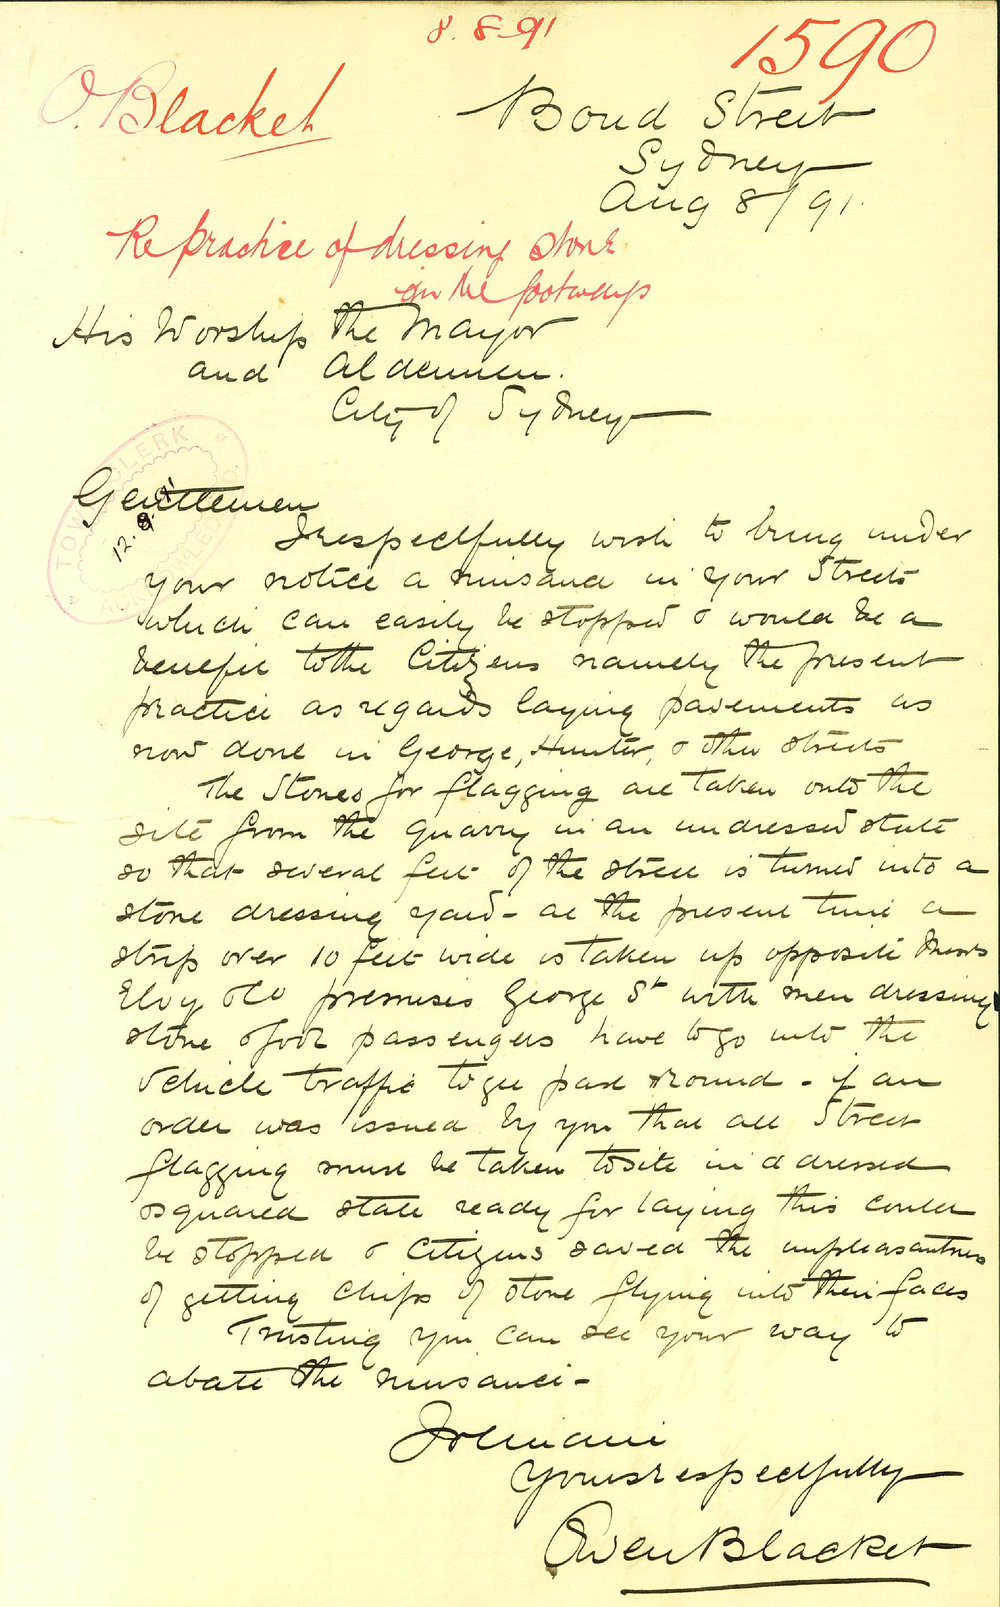 8.8.91
1590
O. Blacket
Bond Street
Sydney
Aug 8/91.
Re practice of dressing stone
on the footways
His Worship the Mayor
and Aldermen.
City of Sydney
TOWN CLERK
12.8.91
Gentlemen
I respectfully wish to bring under
your notice a nuisance in your Streets
which can easily be stopped & would be a
benefit to the Citizens namely the present
practice as regards laying pavements as
now done in George, Hunter, & other streets
The Stones for flagging are taken onto the
site from the quarry in an undressed state
so that several feet of the street is turned into a
stone dressing yard - at the present time a
strip over 10 feet wide is taken up opposite Messrs
& Co premises George St with men dressing
stone & foot passengers have to go into the
vehicle traffic to get past & round - if an
order was issued by you that all Street
flagging must be taken to site in a dressed
& squared state ready for laying this could
be stopped & Citizens saved the unpleasantness
of getting chips of stone flying into their faces
Trusting you can see your way to
abate the nuisance -
I remain
Yours respectfully
Owen Blacket